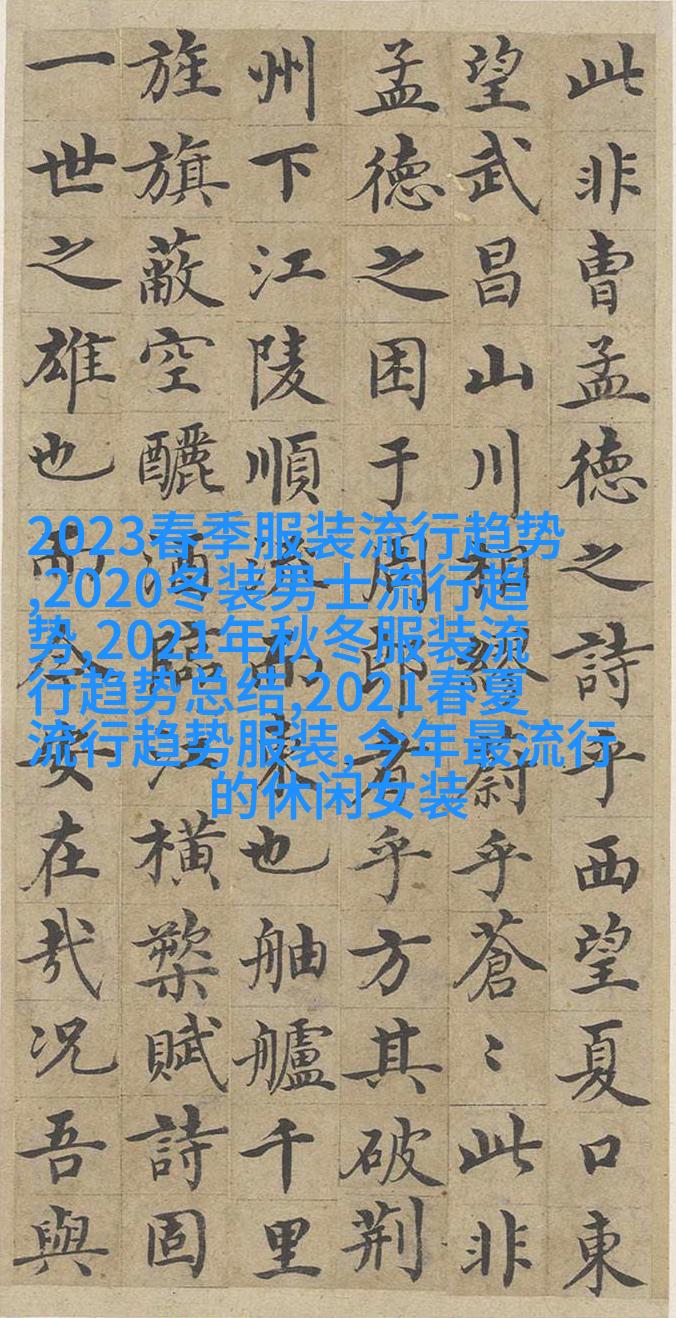 此非曹孟德之詩乎西望夏口東
望武昌山川相繆蔚乎蒼〻此非
孟德之困于周郎者乎方其破荊
州下江陵順流而東也舳艫千里
旌旗蔽空釃酒臨江橫槊賦詩固
一世之雄也而今安在哉況吾與
2023春季服装流行趋势
,2020冬装男士流行趋
势,2021年秋冬服装流
行趋势总结,2021春夏
流行趋势服装,今年最流行
的休闲女装